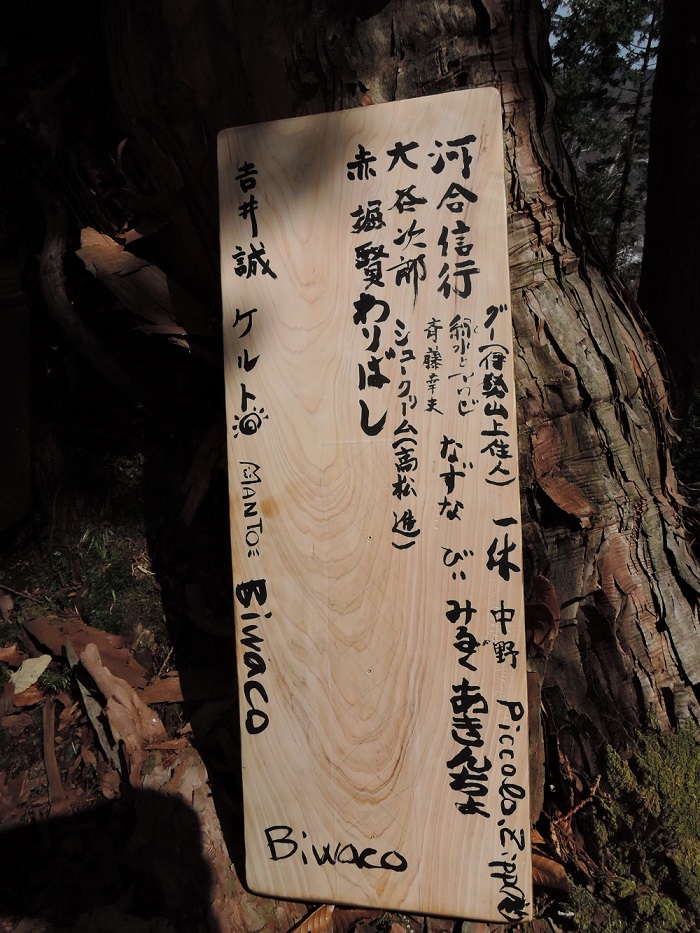 グー(伊勢山上住人) 一休 中野 Piccolo.Zippo
河合信行 斉藤幸夫 なずな びぃ みるく あきんちょ
大谷次郎 シュークリーム(高松 進)
赤堀賢 わりばし
吉井誠 ケルト MANTO Biwaco
Biwaco